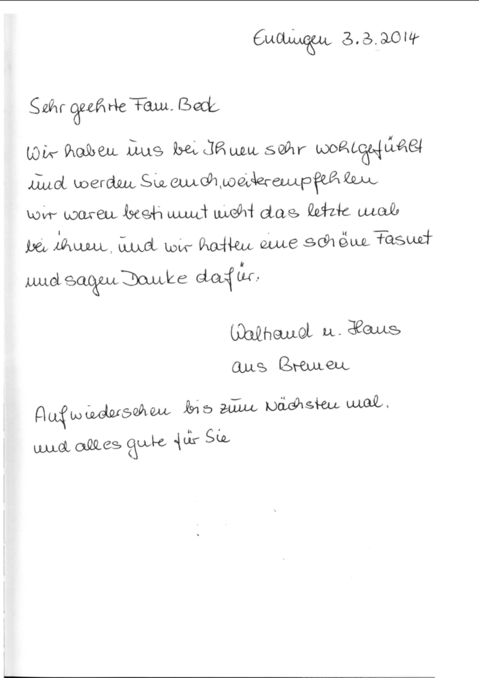 Endingen 3.3.2014
Sehr geehrte Fam. Beck
Wir haben uns bei Ihnen sehr wohlgefühlt
und werden Sie auch, weiterempfehlen
wir waren bestimmt nicht das letzte mal
bei ihnen, und wir hatten eine schöne Fasnet
und sagen Danke dafür.
Waltraud u. Hans
aus Bremen
Aufwiedersehen bis zum Nächsten mal.
und alles gute für Sie